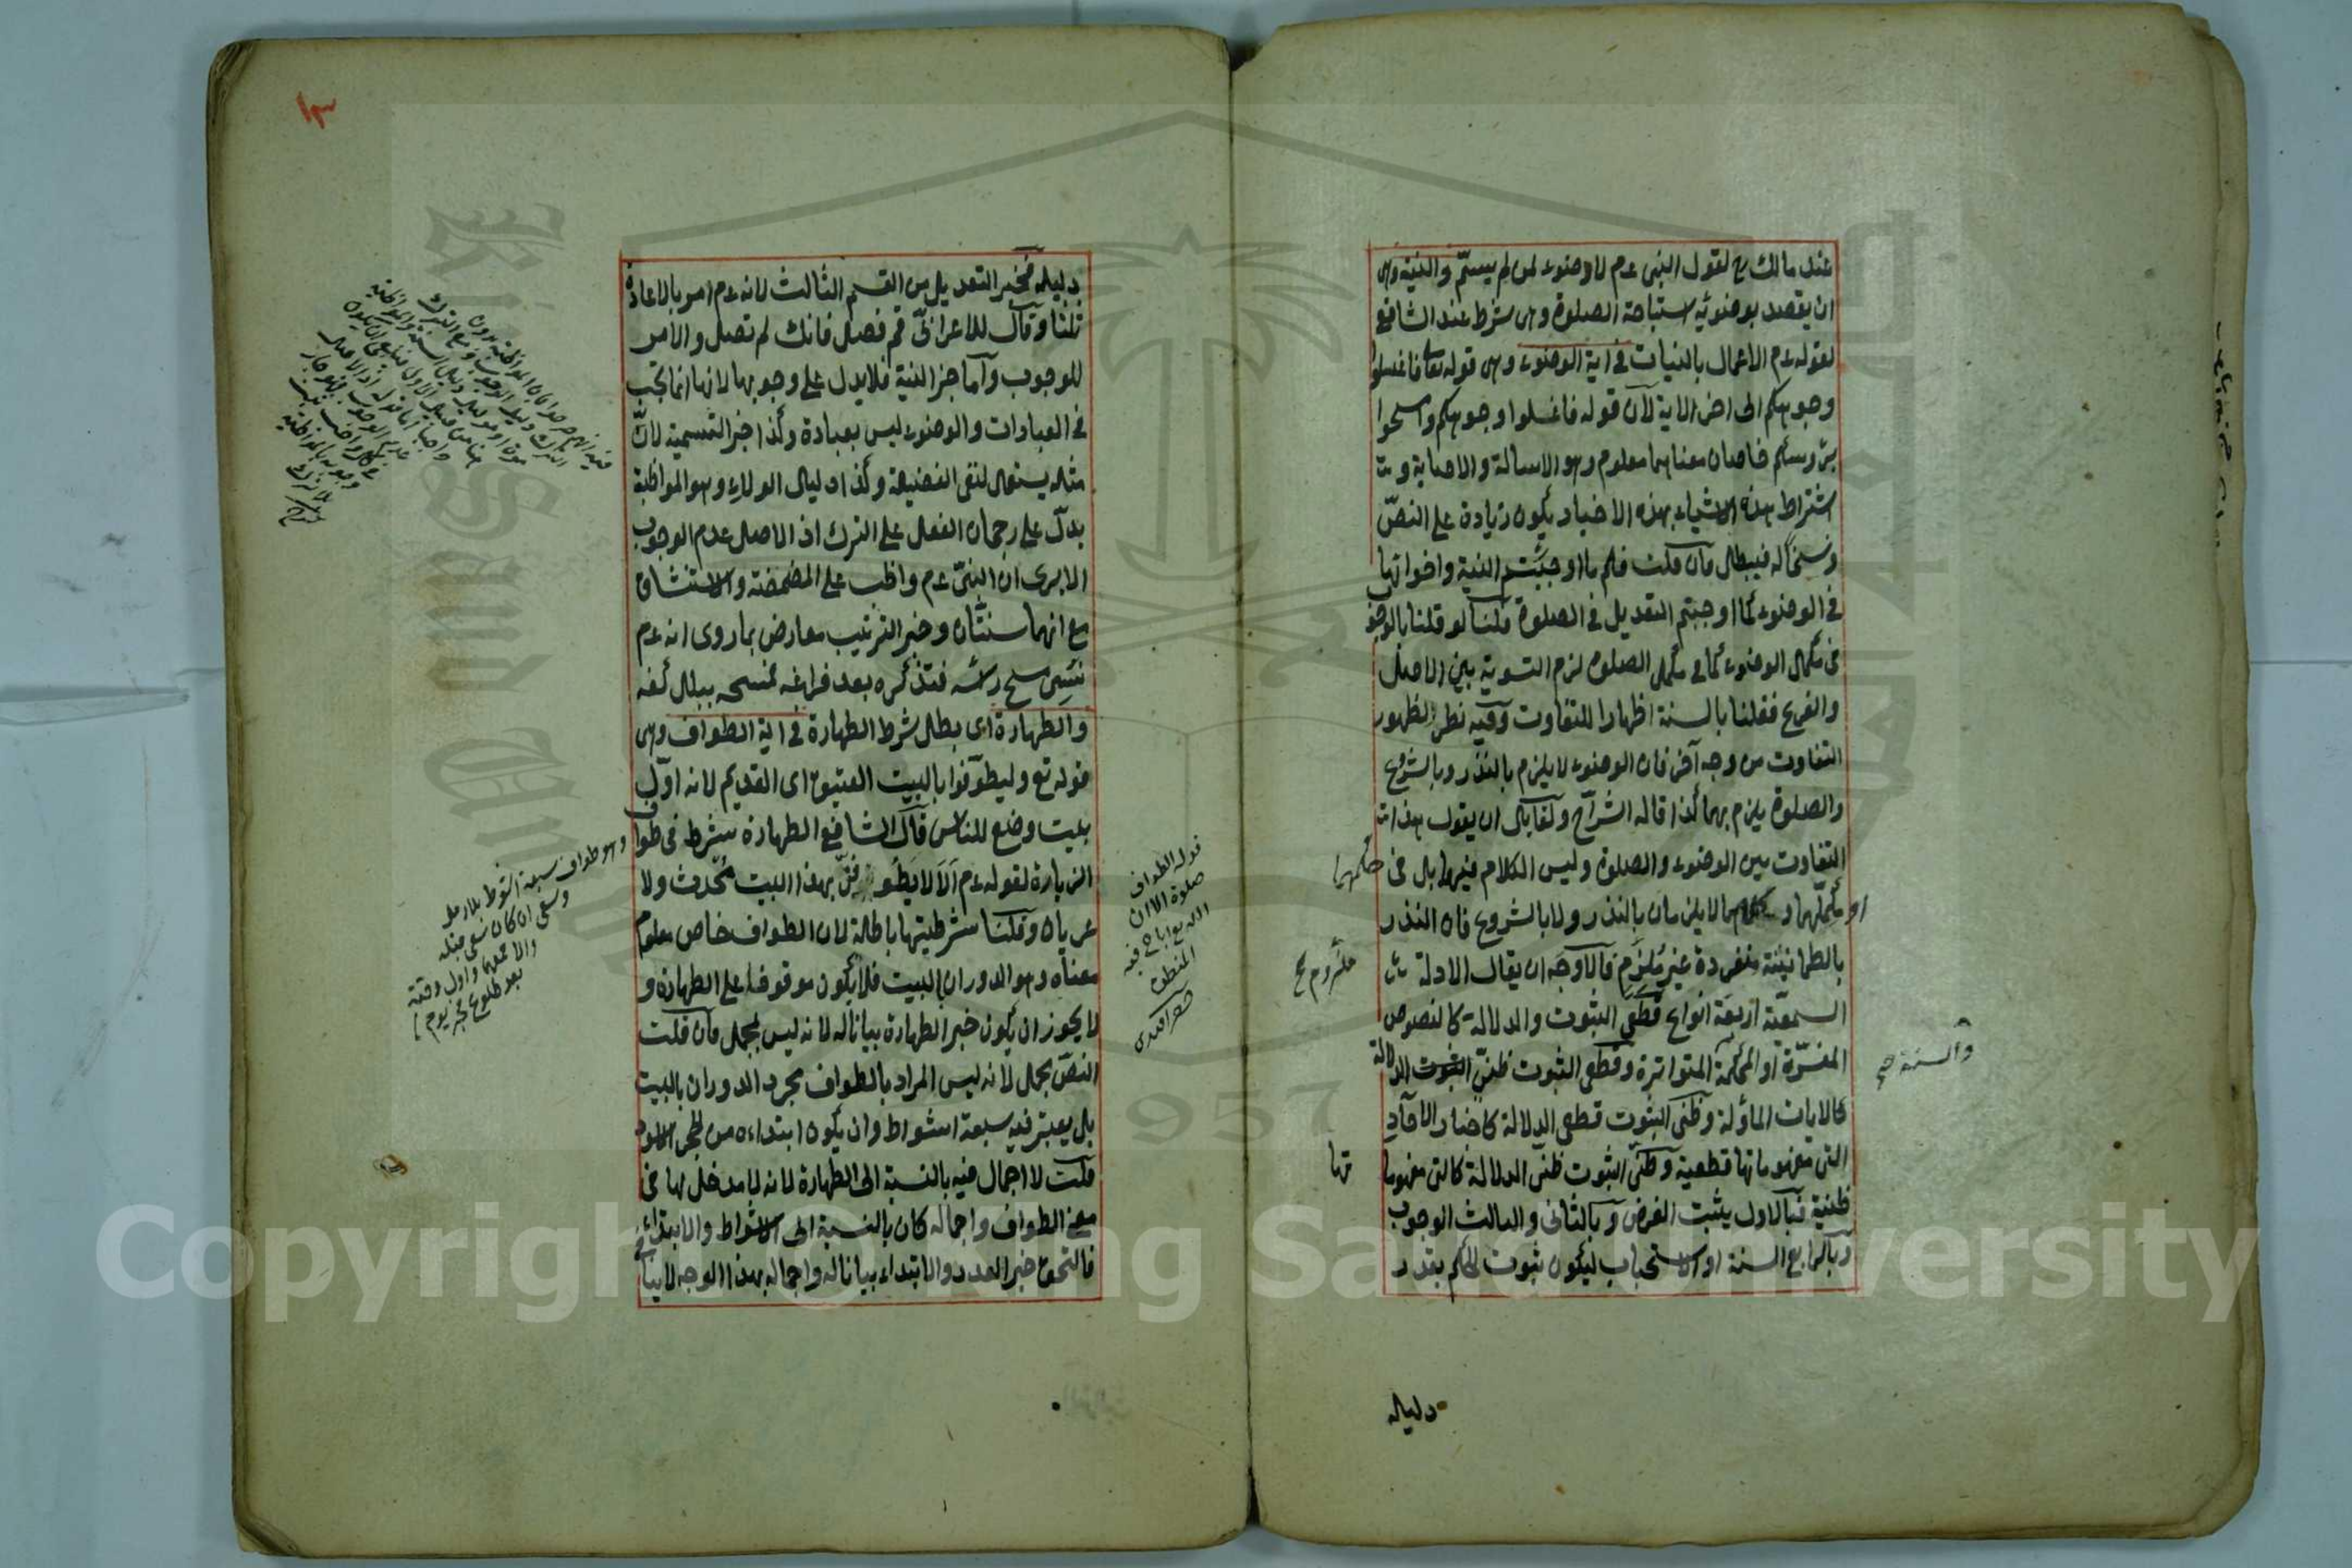 عند مالك رح لقول النبى عم لا وضوء لمن لم يسمّ والنية وهى
ان يقصد بوضوئه استباحة الصلوة وهى شرط عند الشافعى
لقوله عم الاعمال بالنيات فى اية الوضوء وهى قوله تعا فاغسلوا
وجوهكم الى اخر الاية لآن قوله فاغسلوا وجوهكم وامسحوا
برؤسكم خاصان معناهما معلوم وهو الاسالة والاصابة و
اشتراط هذه الاشياء بهذه الاخبار يكون زيادة على النصّ
ونسخا له فيبطل فان قلت فلم ما اوجبتم النية واخواتها
فى الوضوء كما اوجبتم التعديل فى الصلوة قلنا لو قلنا بالوجوب
فى مكمل الوضوء كما فى مكمل الصلوة لزم التسوية بين الاصل
والفرع فقلنا بالسنة اظهارا للتفاوت وفيه نظر لظهور
التفاوت من وجه آخر فان الوضوء لا يلزم بالنذر وبالشروع
والصلوة يلزم بهما كذا قاله الشراح ولقائل ان يقول هذا
التفاوت بين الوضوء والصلوة وليس الكلام فيهما بل فى
مكملهما و لا يلزمان بالنذر ولا بالشروع فان النذر
بالطمانينة منفردة غير مُلزَمٍ فالاوجَه ان يقال الادلة
السمعيّة اربعة انواع قطعى الثبوت والدلالة كالنصوص
المفسّرة او المحكمة المتواترة وقطعى الثبوت ظنىّ الدلالة
كالايات المأولة وظنى الثبوت قطعى الدلالة كاخبار الاحآد
التى مفهوماتها قطعية وظنىّ الثبوت ظنىّ الدلالة كالتى مفهوما
ظنية فبالاول يثبت الفرض وبالثانى والثالث الوجوب
وبالرابع السنة او الاستحباب ليكون ثبوت الحكم بقدر
حكمهما
تها
والسنة صح
دليله
دليله فخبر التعديل من القسم الثالث لانه عم امر بالاعادة
ثلثا وقال للاعرابىّ قم فصل فانك لم تصل والامر
للوجوب وآما خبر النية فلا يدل على وجوبها لانها انما تجب
فى العبادات والوضوء ليس بعبادة وكذا خبر التسمية لانّ
مثله يستعمل لنفى الفضيلة وكذا دليل الولاء وهو المواظبة
يدلّ على رجحان الفعل على الترك اذ الاصل عدم الوجوب
الا يرى ان النبىّ عم واظب على المضمضة والاستنشاق
مع انهما سنتان وخبر الترتيب معارض بما روى انه عم
نَسِىَ مسح رأسه فتذكره بعد فراغه فمسحه ببلل كفه
والطهارة اى بطل شرط الطهارة فى اية الطواف وهى
قوله تع وليطوّفوا بالبيت العتيق اى القديم لانه اوّل
بيت وضع للناس قال الشافعى الطهارة شرط فى طواف
الزيارة لقوله عم اَلاَ لا يَطُوفَنّ بهذا البيت مُحْدث ولا
عريان وقلنا شرطيتها باطلة لان الطواف خاص معلوم
معناه وهو الدوران بالبيت فلا يكون موقوفا على الطهارة و
لا يجوز ان يكون خبر الطهارة بيانا له لانه ليس بمجمل فان قلت
النصّ مجمل لانه ليس المراد بالطواف مجرد الدوران بالبيت
بل يعتبر فيه سبعة اشواط وان يكون ابتداءه من الحجر الاسود
قلت لا اجمال فيه بالنسبة الى الطهارة لانه لا مدخل لها فى
معنى الطواف واجماله كان بالنسبة الى الاشواط والابتداء
فالتحق خبر العدد والابتداء بيانا له واجماله بهذا الوجه لا ينافى
وهو طواف سبعة اشوط بلا رمل
وسعى ان كان سعى قبله
والا فعلهما واول وقته
بعد طلوع فجر يوم
قوله الطواف
صلوة الا ان
الله تع اباح فيه
المنطق
Copyright © King Saud University
1957